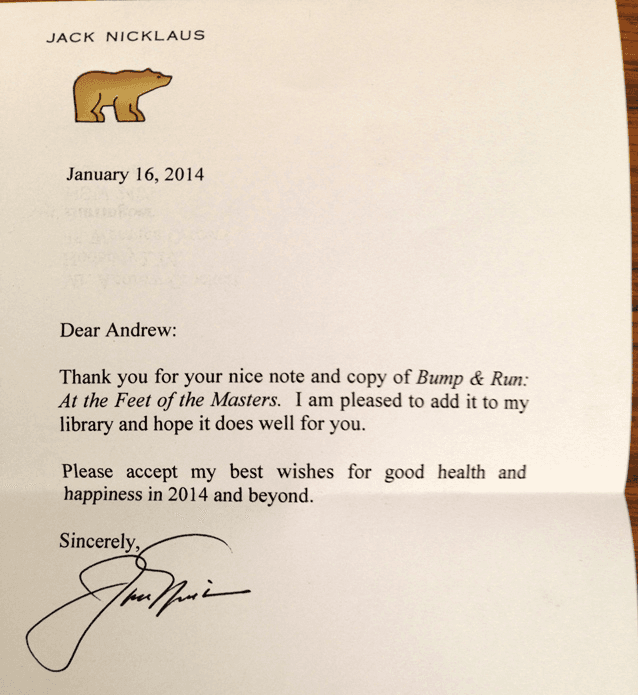 JACK NICKLAUS
January 16, 2014
Dear Andrew:
Thank you for your nice note and copy of Bump & Run:
At the Feet of the Masters. I am pleased to add it to my
library and hope it does well for you.
Please accept my best wishes for good health and
happiness in 2014 and beyond.
Sincerely,